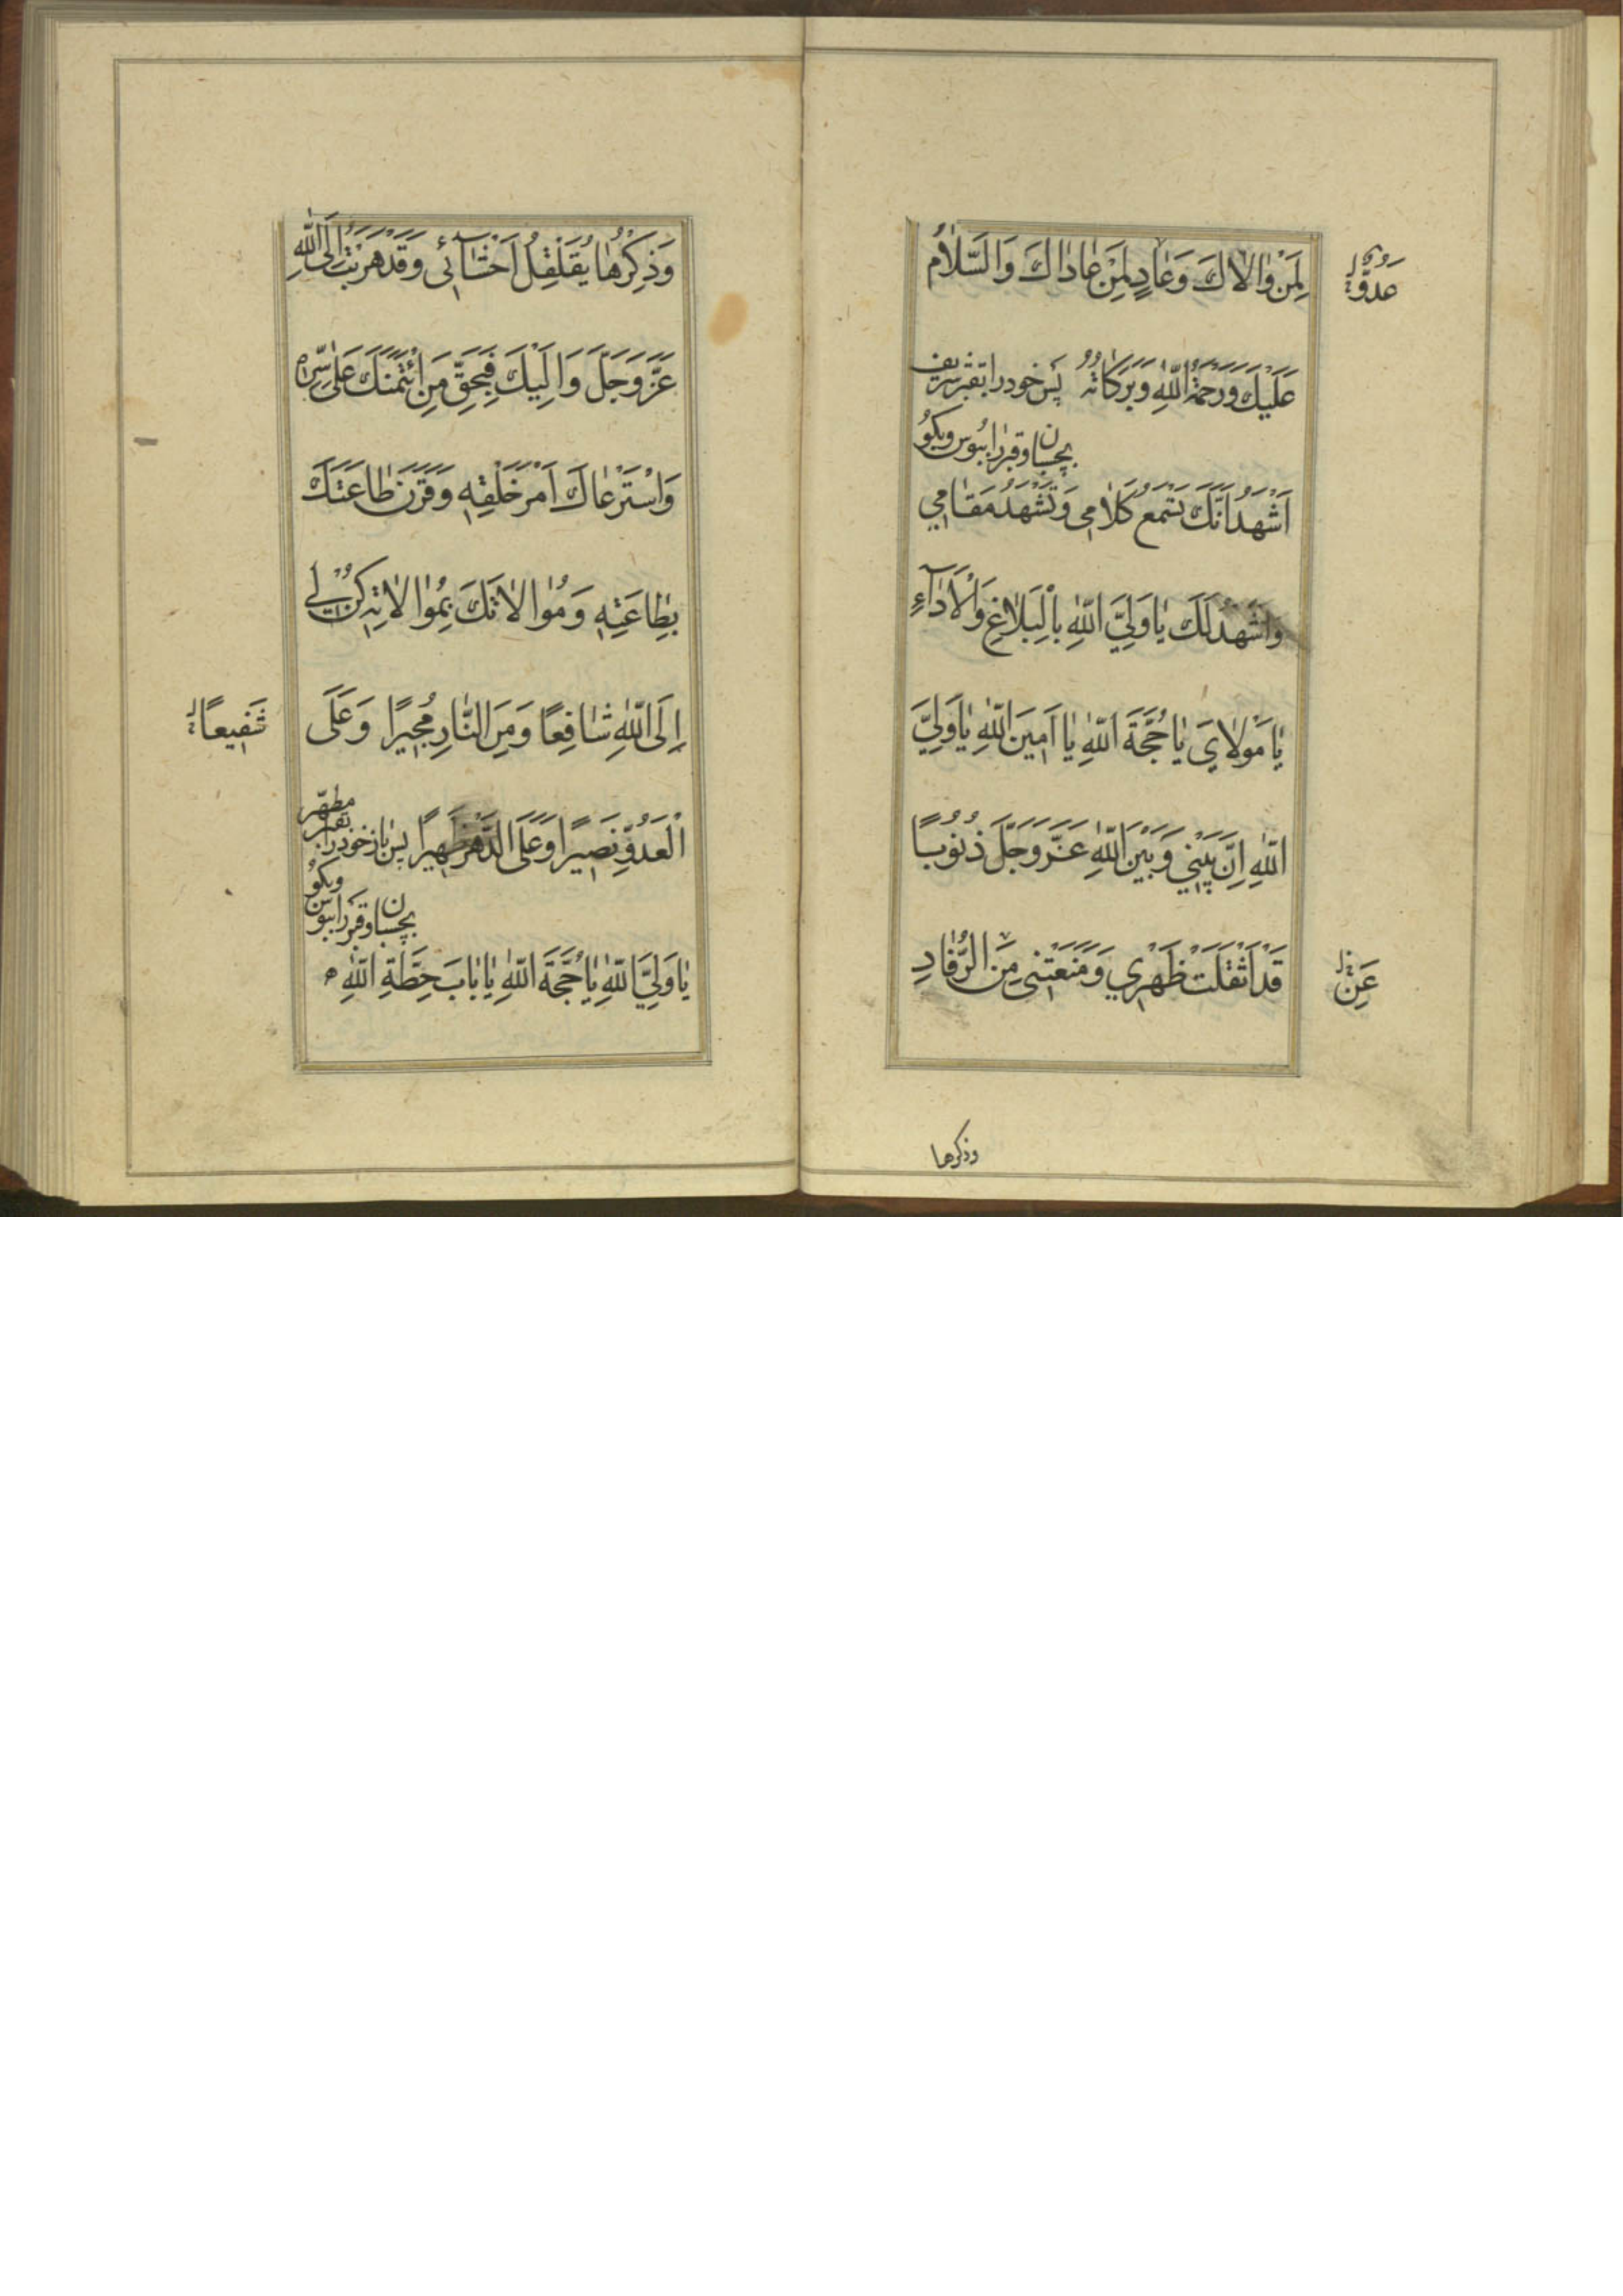 لِمَنْ وٰالاٰكَ وَعٰادٍ لِمَنْ عٰادٰاكَ وَالسَّلاٰمُ
عَدُوٌّ
عَلَيْكَ وَرَحْمَةُ اللّٰهِ وَبَرَكٰاتُهُ پس خود را بقبر شریف
بچسبان و قبر را ببوس و بگو
اَشْهَدُ اَنَّكَ تَسْمَعُ كَلاٰمِي وَتَشْهَدُ مَقٰامِي
وَاَشْهَدُ لَكَ يٰا وَلِيَّ اللّٰهِ بِالْبَلاٰغِ وَالْاَدٰآءِ
يٰا مَوْلاٰيَ يٰا حُجَّةَ اللّٰهِ يٰا اَمِينَ اللّٰهِ يٰا وَلِيَّ
اللّٰهِ اِنَّ بَيْنِي وَبَيْنَ اللّٰهِ عَزَّ وَجَلَّ ذُنُوبًا
قَدْ اَثْقَلَتْ ظَهْرِي وَمَنَعَتْنِي مِنَ الرُّقٰادِ
عَنِ
وذكرها
وَذِكْرُهٰا يُقَلْقِلُ اَحْشٰآئِي وَقَدْ هَرَبْتُ اِلَى اللّٰهِ
عَزَّ وَجَلَّ وَاِلَيْكَ فَبِحَقِّ مَنِ ائْتَمَنَكَ عَلىٰ سِرِّهِ
وَاسْتَرْعٰاكَ اَمْرَ خَلْقِهِ وَقَرَنَ طٰاعَتَكَ
بِطٰاعَتِهِ وَمُوٰالاٰتَكَ بِمُوٰالاٰتِهِ كُنْ لِي
اِلَى اللّٰهِ شٰافِعًا وَمِنَ النّٰارِ مُجِيرًا وَعَلَى
شَفِيعًا
الْعَدُوِّ نَصِيرًا وَعَلَى الدَّهْرِ ظَهِيرًا پس باز خود را بقبر مطهّر
بچسبان و قبر را ببوس و بگو
يٰا وَلِيَّ اللّٰهِ يٰا حُجَّةَ اللّٰهِ يٰا بٰابَ حِطَّةِ اللّٰهِ